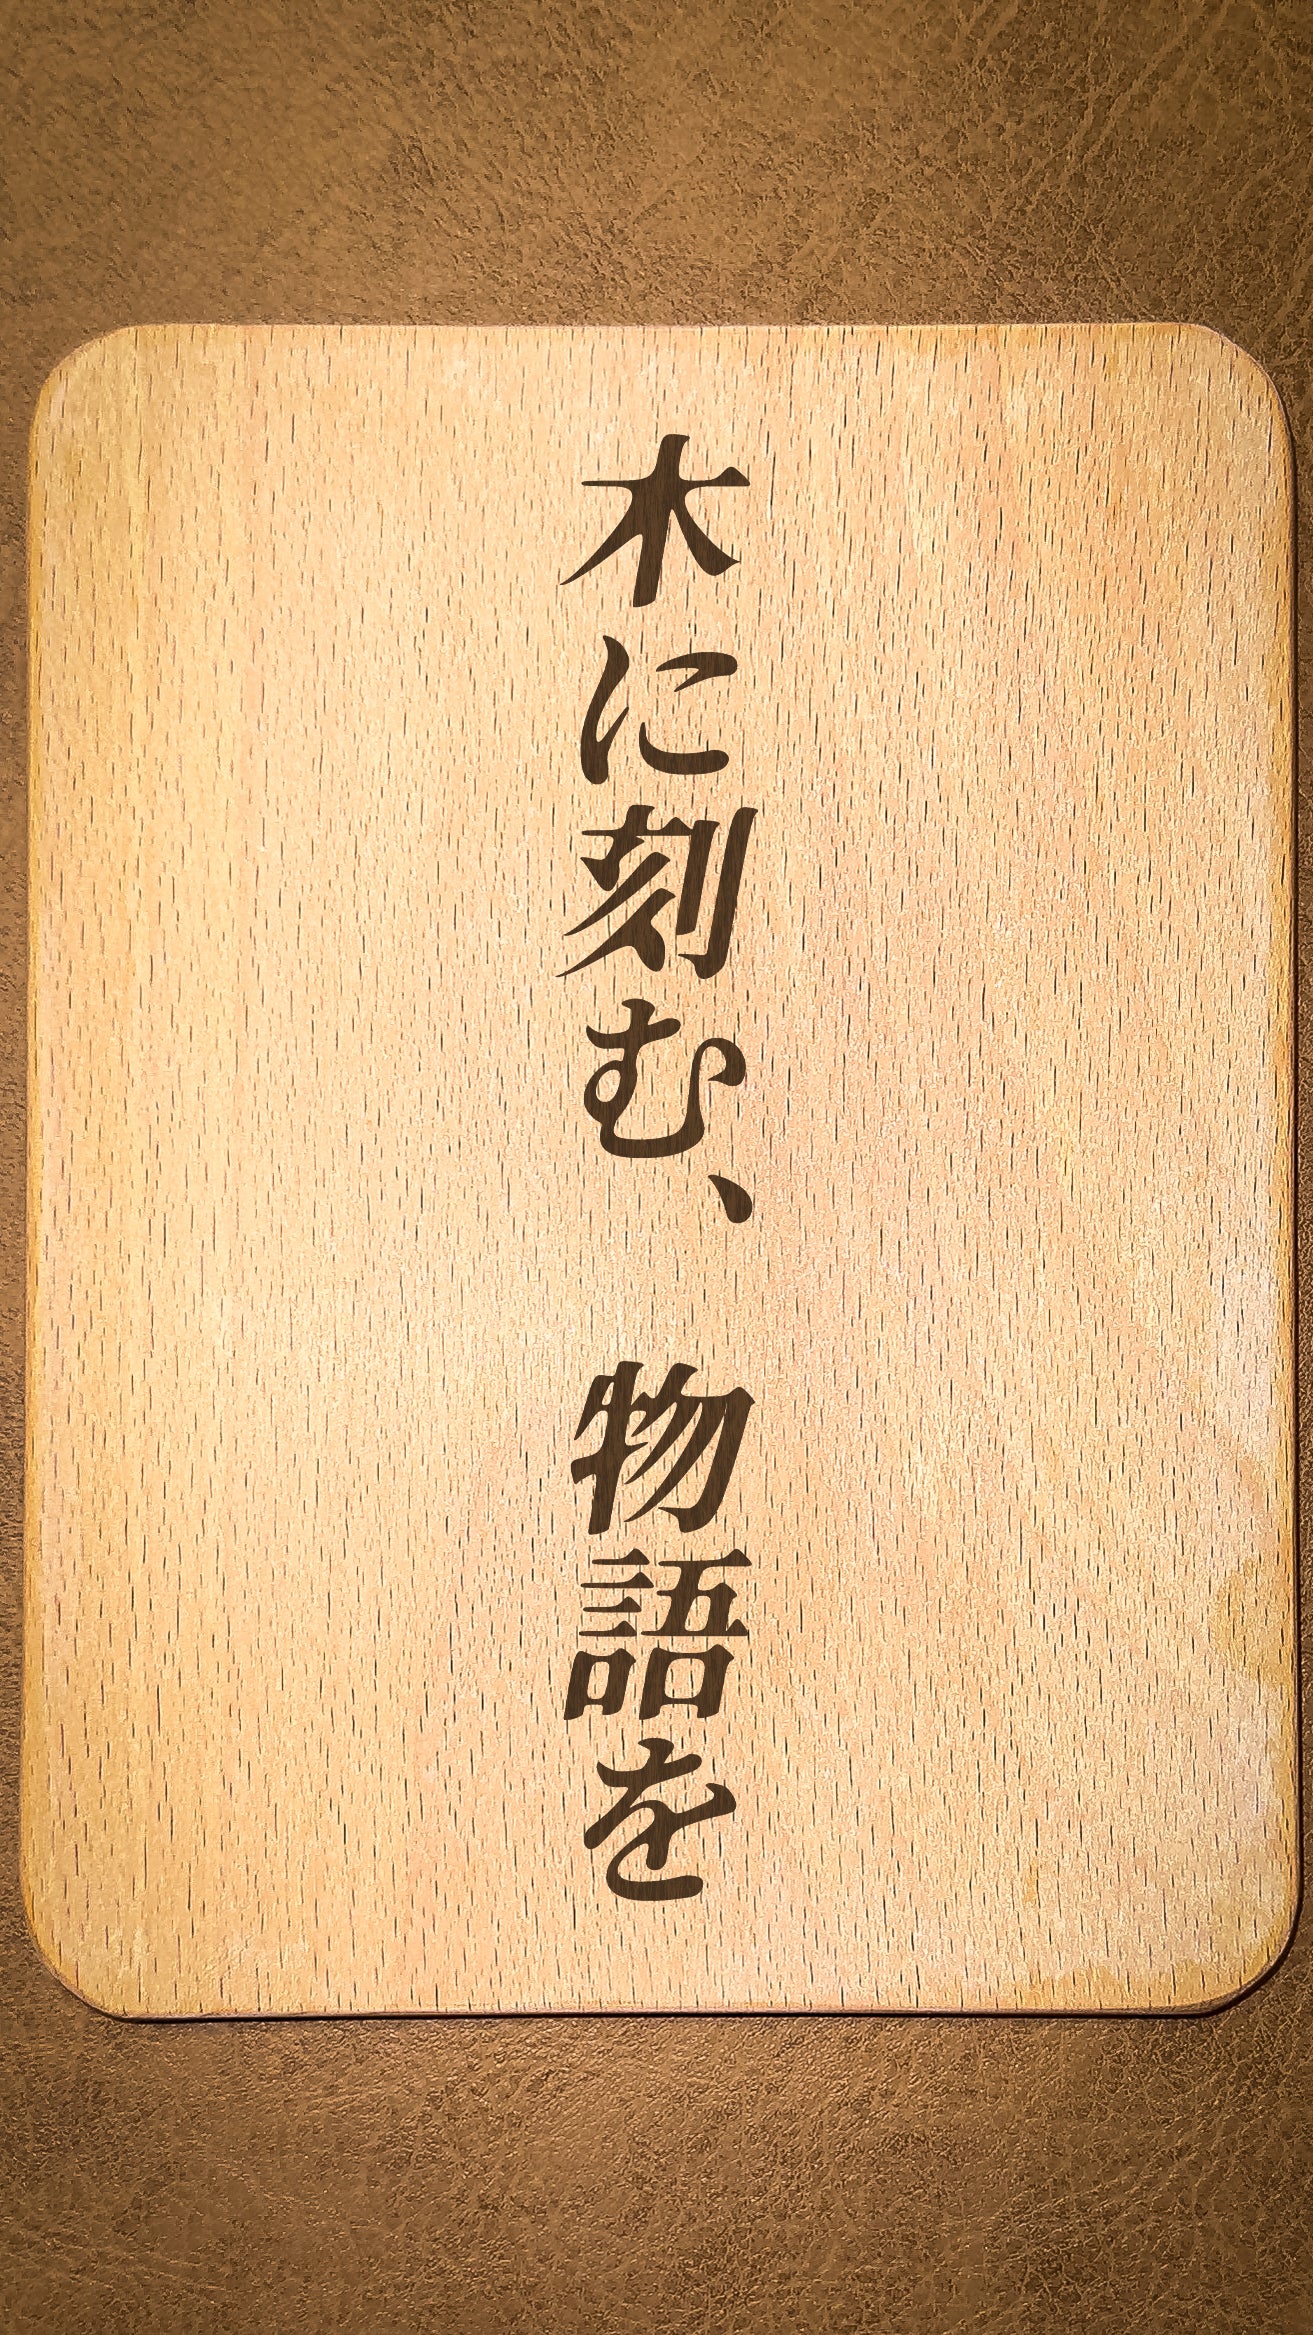 木に刻む、物語を